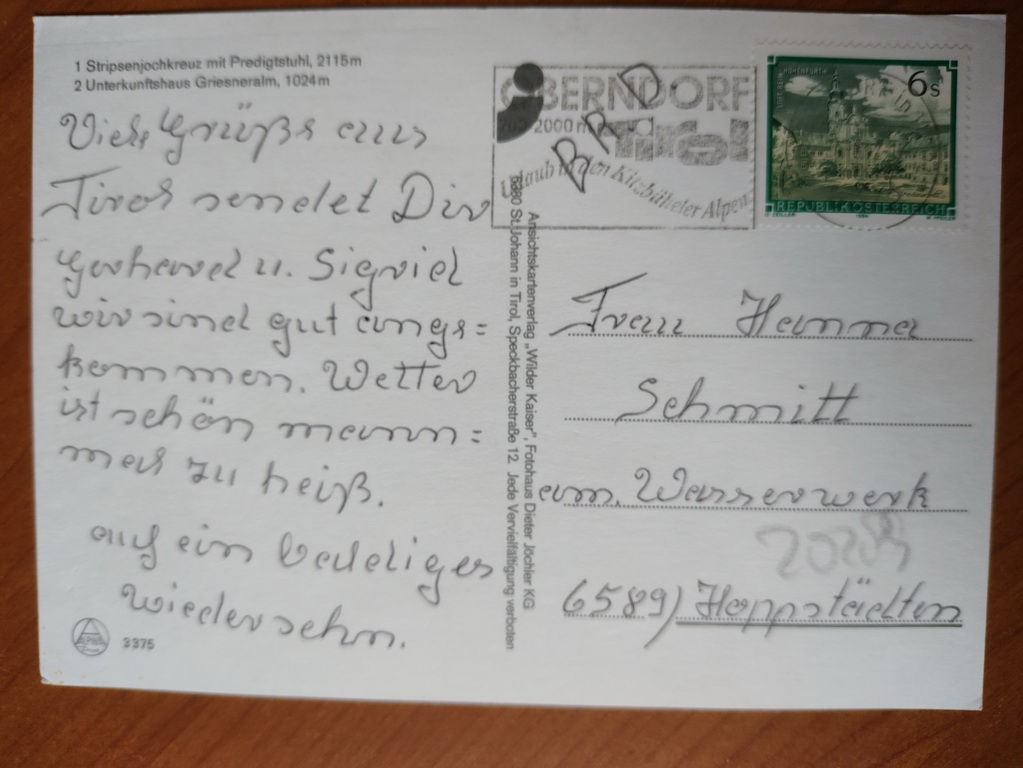 1 Stripsenjochkreuz mit Predigtstuhl, 2115m
2 Unterkunftshaus Griesneralm, 1024m
Viele Grüße aus
Tirol sendet Dir
Gerhard u. Sigrid
wir sind gut ange=
kommen. Wetter
ist schön mann=
mal zu heiß.
auf ein baldiges
Wiedersehn.
3375
Ansichtskartenverlag „Wilder Kaiser", Fotohaus Dieter Jöchler KG
6380 St. Johann in Tirol, Speckbacherstraße 12. Jede Vervielfältigung verboten
OBERNDORF
2000 m
Tirol
Urlaub in den Kitzbüheler Alpen
BRD
6s
REPUBLIK ÖSTERREICH
Frau Hanna
Schmitt
am. Wasserwerk
6589) Hoppstädten